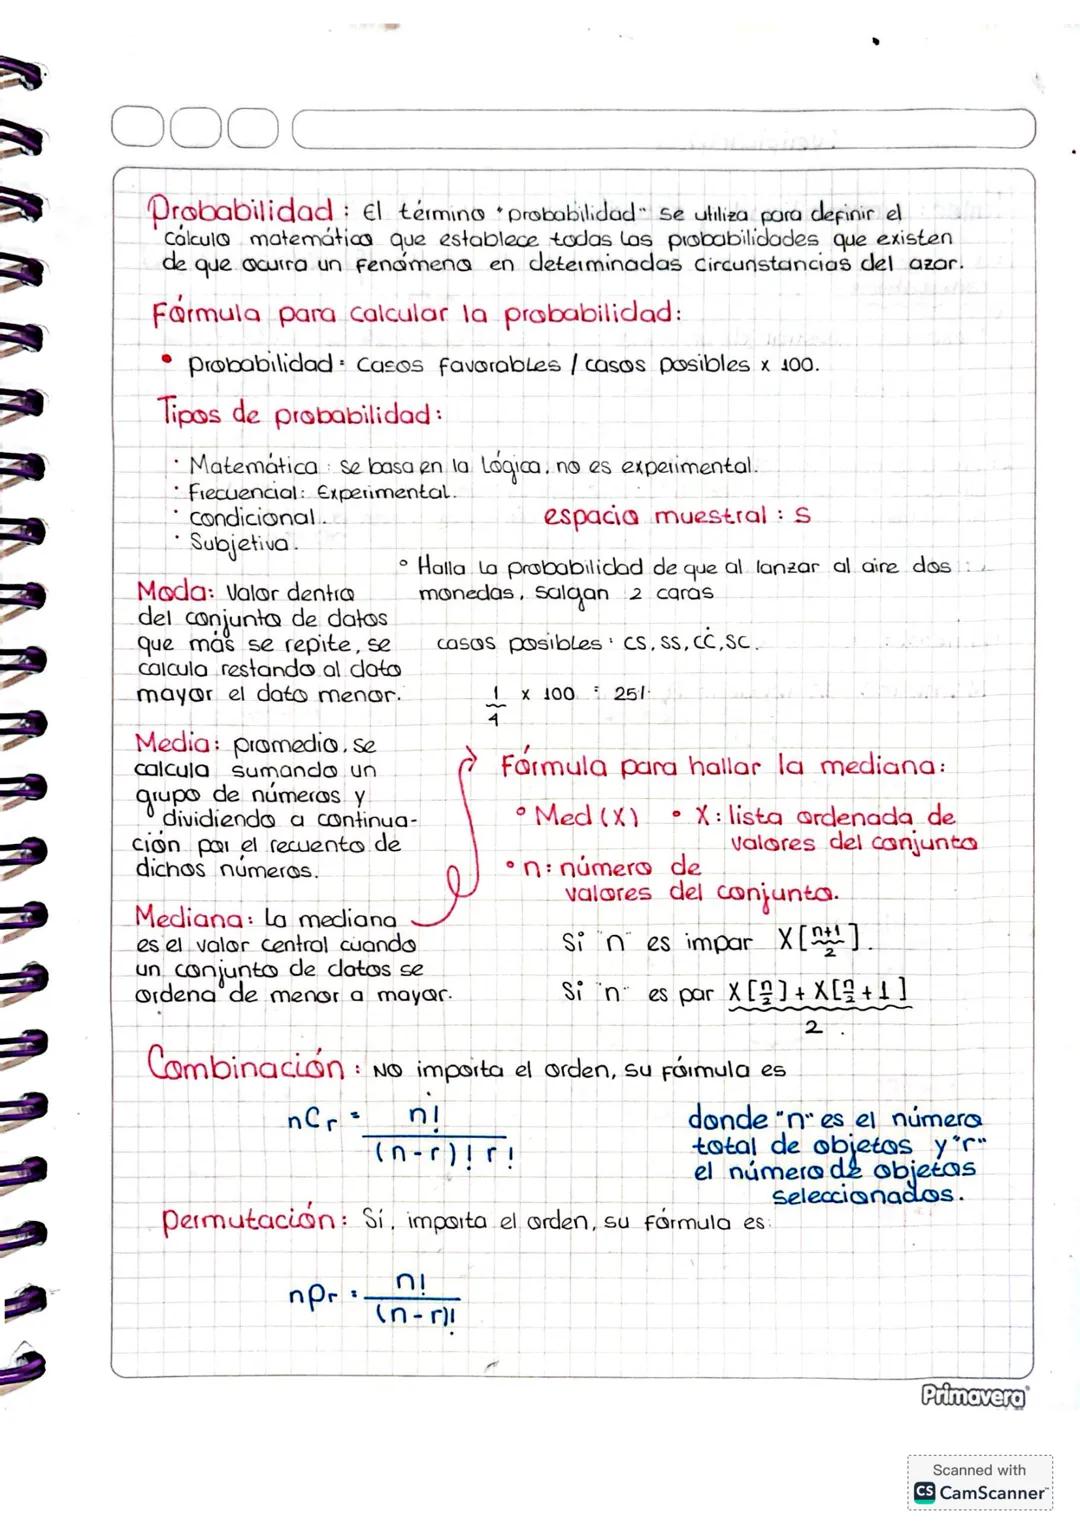 Probabilidad: El término "probabilidad" se utiliza para definir el
cálculo matemático que establece todas las probabilidades que existen
de que ocurra un fenómeno en determinadas circunstancias del azar.
Fórmula para calcular la probabilidad:
• probabilidad = Casos favorables / casos posibles x 100.
Tipos de probabilidad:
· Matemática: se basa en la lógica, no es experimental.
· Frecuencial: Experimental.
· condicional.
· Subjetiva.
espacio muestral: S
° Halla la probabilidad de que al lanzar al aire dos
monedas, salgan 2 caras
casos posibles: CS, SS, CC, SC.
1/4 x 100 = 25%
Moda: Valor dentro
del conjunto de datos
que más se repite, se
calcula restando al dato
mayor el dato menor.
Media: promedio, se
calcula sumando un
grupo de números y
dividiendo a continua-
ción por el recuento de
dichos números.
Mediana: La mediana
es el valor central cuando
un conjunto de datos se
ordena de menor a mayor.
Fórmula para hallar la mediana:
° Med (X) • X: lista ordenada de
valores del conjunto
° n: número de
valores del conjunto.
Si "n" es impar X[n+1/2].
Si "n" es par X[n/2] + X[n/2 + 1]
2.
Combinación: No importa el orden, su fórmula es
nCr = n!
(n-r)! r!
donde "n" es el número
total de objetos y "r"
el número de objetos
seleccionados.
Permutación: Sí, importa el orden, su fórmula es:
nPr = n!
(n-r)!
Primavera
Scanned with
CS CamScanner